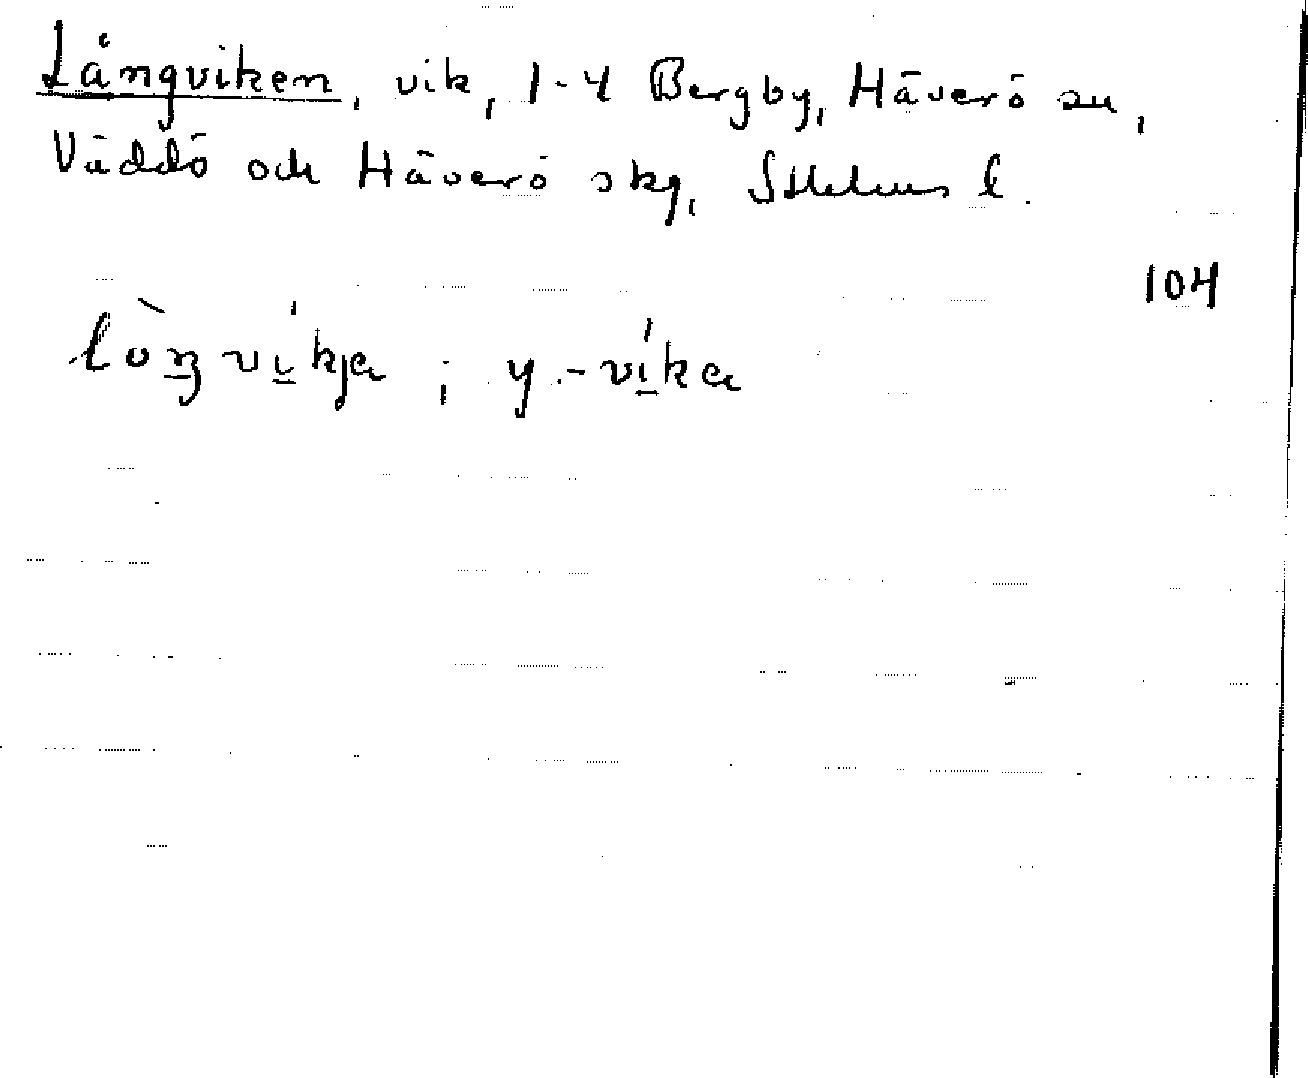 Långviken, vik, 1-4 Bergby, Häverö sn,
Väddö och Häverö skg, Sthlms l.
104
lò̀ŋví̱kja ; y.-ví̱ka